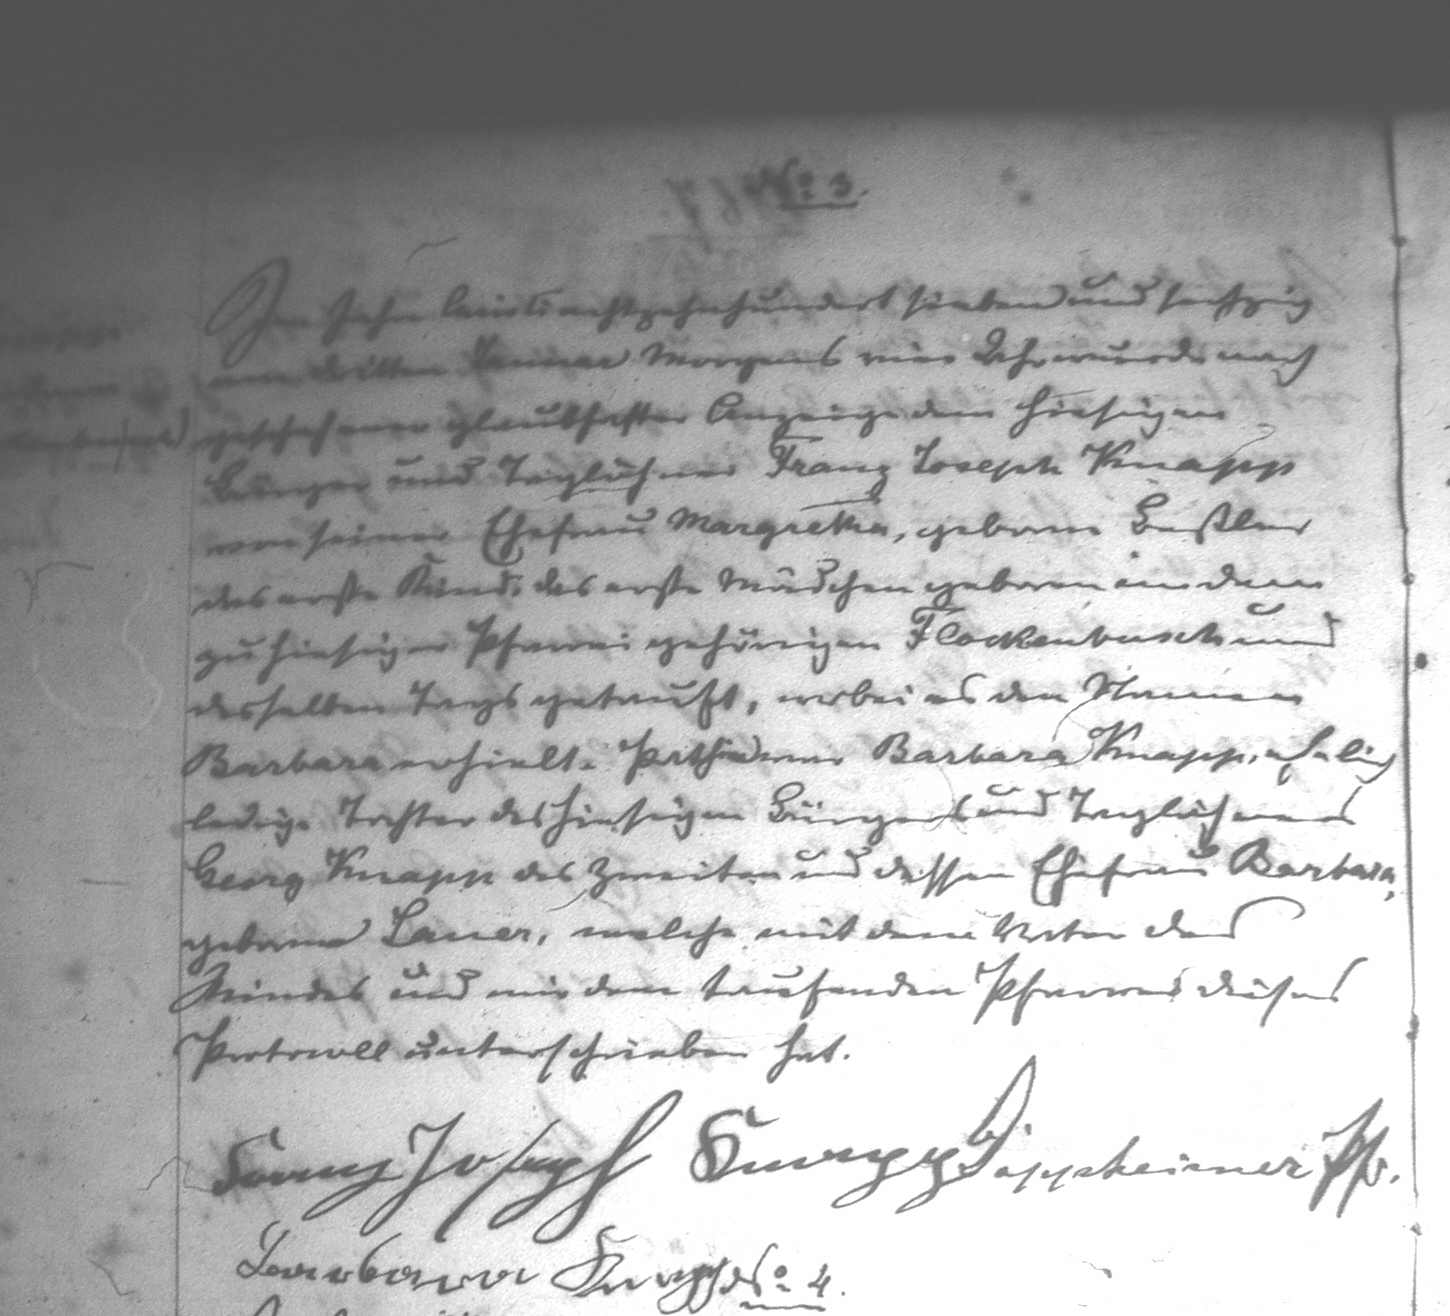 No 3.
Im Jahr Christi achtzehnhundert sieben und sechzig
am dritten Januar Morgens vier Uhr wurde nach
geschehener glaubhafter Anzeige dem hiesigen
Bürger und Taglöhner Franz Joseph Knapp
von seiner Ehefrau Margretha, geborne
das erste Kind, das erste Mädchen geboren in dem
zu hiesiger Pfarrei gehörigen Flockenbusch und
desselben Tags getauft, wobei es den Namen
Barbara erhielt. Pathin war Barbara Knapp, ehelich
ledige Tochter des hiesigen Bürgers und Taglöhners
Georg Knapp des Zweiten und dessen Ehefrau Barbara,
geborne Lauer, welche mit dem Vater des
Kindes und mir dem taufenden Pfarrer dieses
Protocoll unterschrieben hat.
Franz Joseph Knapp Dippsheimer Pfr.
Barbara Knapp
No 4.